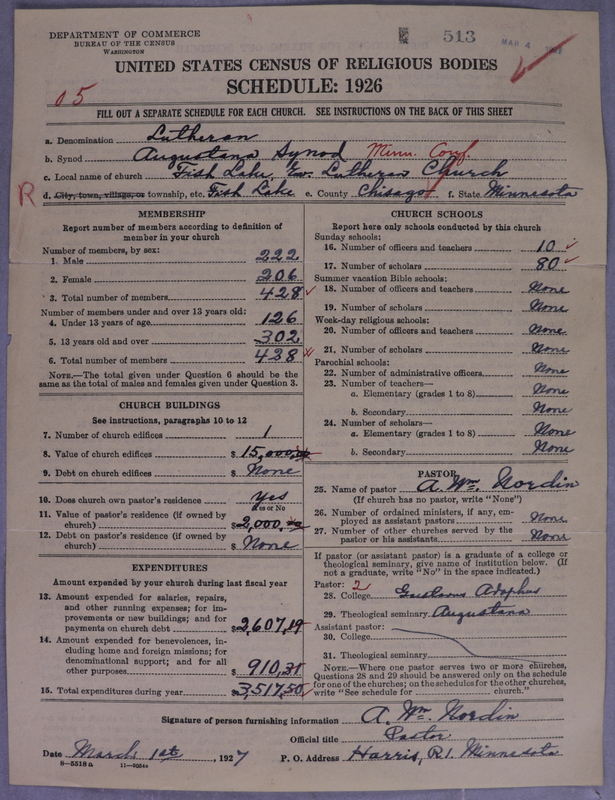 DEPARTMENT OF COMMERCE
BUREAU OF THE CENSUS
WASHINGTON
513
MAR 4
UNITED STATES CENSUS OF RELIGIOUS BODIES
SCHEDULE: 1926
05
FILL OUT A SEPARATE SCHEDULE FOR EACH CHURCH. SEE INSTRUCTIONS ON THE BACK OF THIS SHEET
a. Denomination Lutheran
b. Synod Augustana Synod Minn. Conf.
c. Local name of church Fish Lake, Ev. Lutheran Church
R d. City, town, village, or township, etc. Fish Lake e. County Chisago f. State Minnesota
MEMBERSHIP
Report number of members according to definition of
member in your church
Number of members, by sex:
1. Male 222
2. Female 206
3. Total number of members 428
Number of members under and over 13 years old:
4. Under 13 years of age 126
5. 13 years old and over 302
6. Total number of members 428
NOTE.—The total given under Question 6 should be the
same as the total of males and females given under Question 3.
CHURCH BUILDINGS
See instructions, paragraphs 10 to 12
7. Number of church edifices 1
8. Value of church edifices $ 15,000.00
9. Debt on church edifices $ None
10. Does church own pastor's residence Yes
Yes or No
11. Value of pastor's residence (if owned by
church) $ 2,000.00
12. Debt on pastor's residence (if owned by
church) $ None
EXPENDITURES
Amount expended by your church during last fiscal year
13. Amount expended for salaries, repairs,
and other running expenses; for im-
provements or new buildings; and for
payments on church debt $ 2,607,19
14. Amount expended for benevolences, in-
cluding home and foreign missions; for
denominational support; and for all
other purposes $ 910,31
15. Total expenditures during year $ 3,517,50
CHURCH SCHOOLS
Report here only schools conducted by this church
Sunday schools:
16. Number of officers and teachers 10
17. Number of scholars 80
Summer vacation Bible schools:
18. Number of officers and teachers None
19. Number of scholars None
Week-day religious schools:
20. Number of officers and teachers None
21. Number of scholars None
Parochial schools:
22. Number of administrative officers None
23. Number of teachers—
a. Elementary (grades 1 to 8) None
b. Secondary None
24. Number of scholars—
a. Elementary (grades 1 to 8) None
b. Secondary None
PASTOR
25. Name of pastor A. Wm. Nordin
(If church has no pastor, write "None")
26. Number of ordained ministers, if any, em-
ployed as assistant pastors None
27. Number of other churches served by the
pastor or his assistants None
If pastor (or assistant pastor) is a graduate of a college or
theological seminary, give name of institution below. (If
not a graduate, write "No" in the space indicated.)
Pastor: 2
28. College Gustavus Adolphus
29. Theological seminary Augustana
Assistant pastor:
30. College
31. Theological seminary
NOTE.—Where one pastor serves two or more churches,
Questions 28 and 29 should be answered only on the schedule
for one of the churches; on the schedules for the other churches,
write "See schedule for church."
Signature of person furnishing information A. Wm. Nordin
Official title Pastor
Date March 1st, 1927 P. O. Address Harris, R.1. Minnesota
8—5518 a